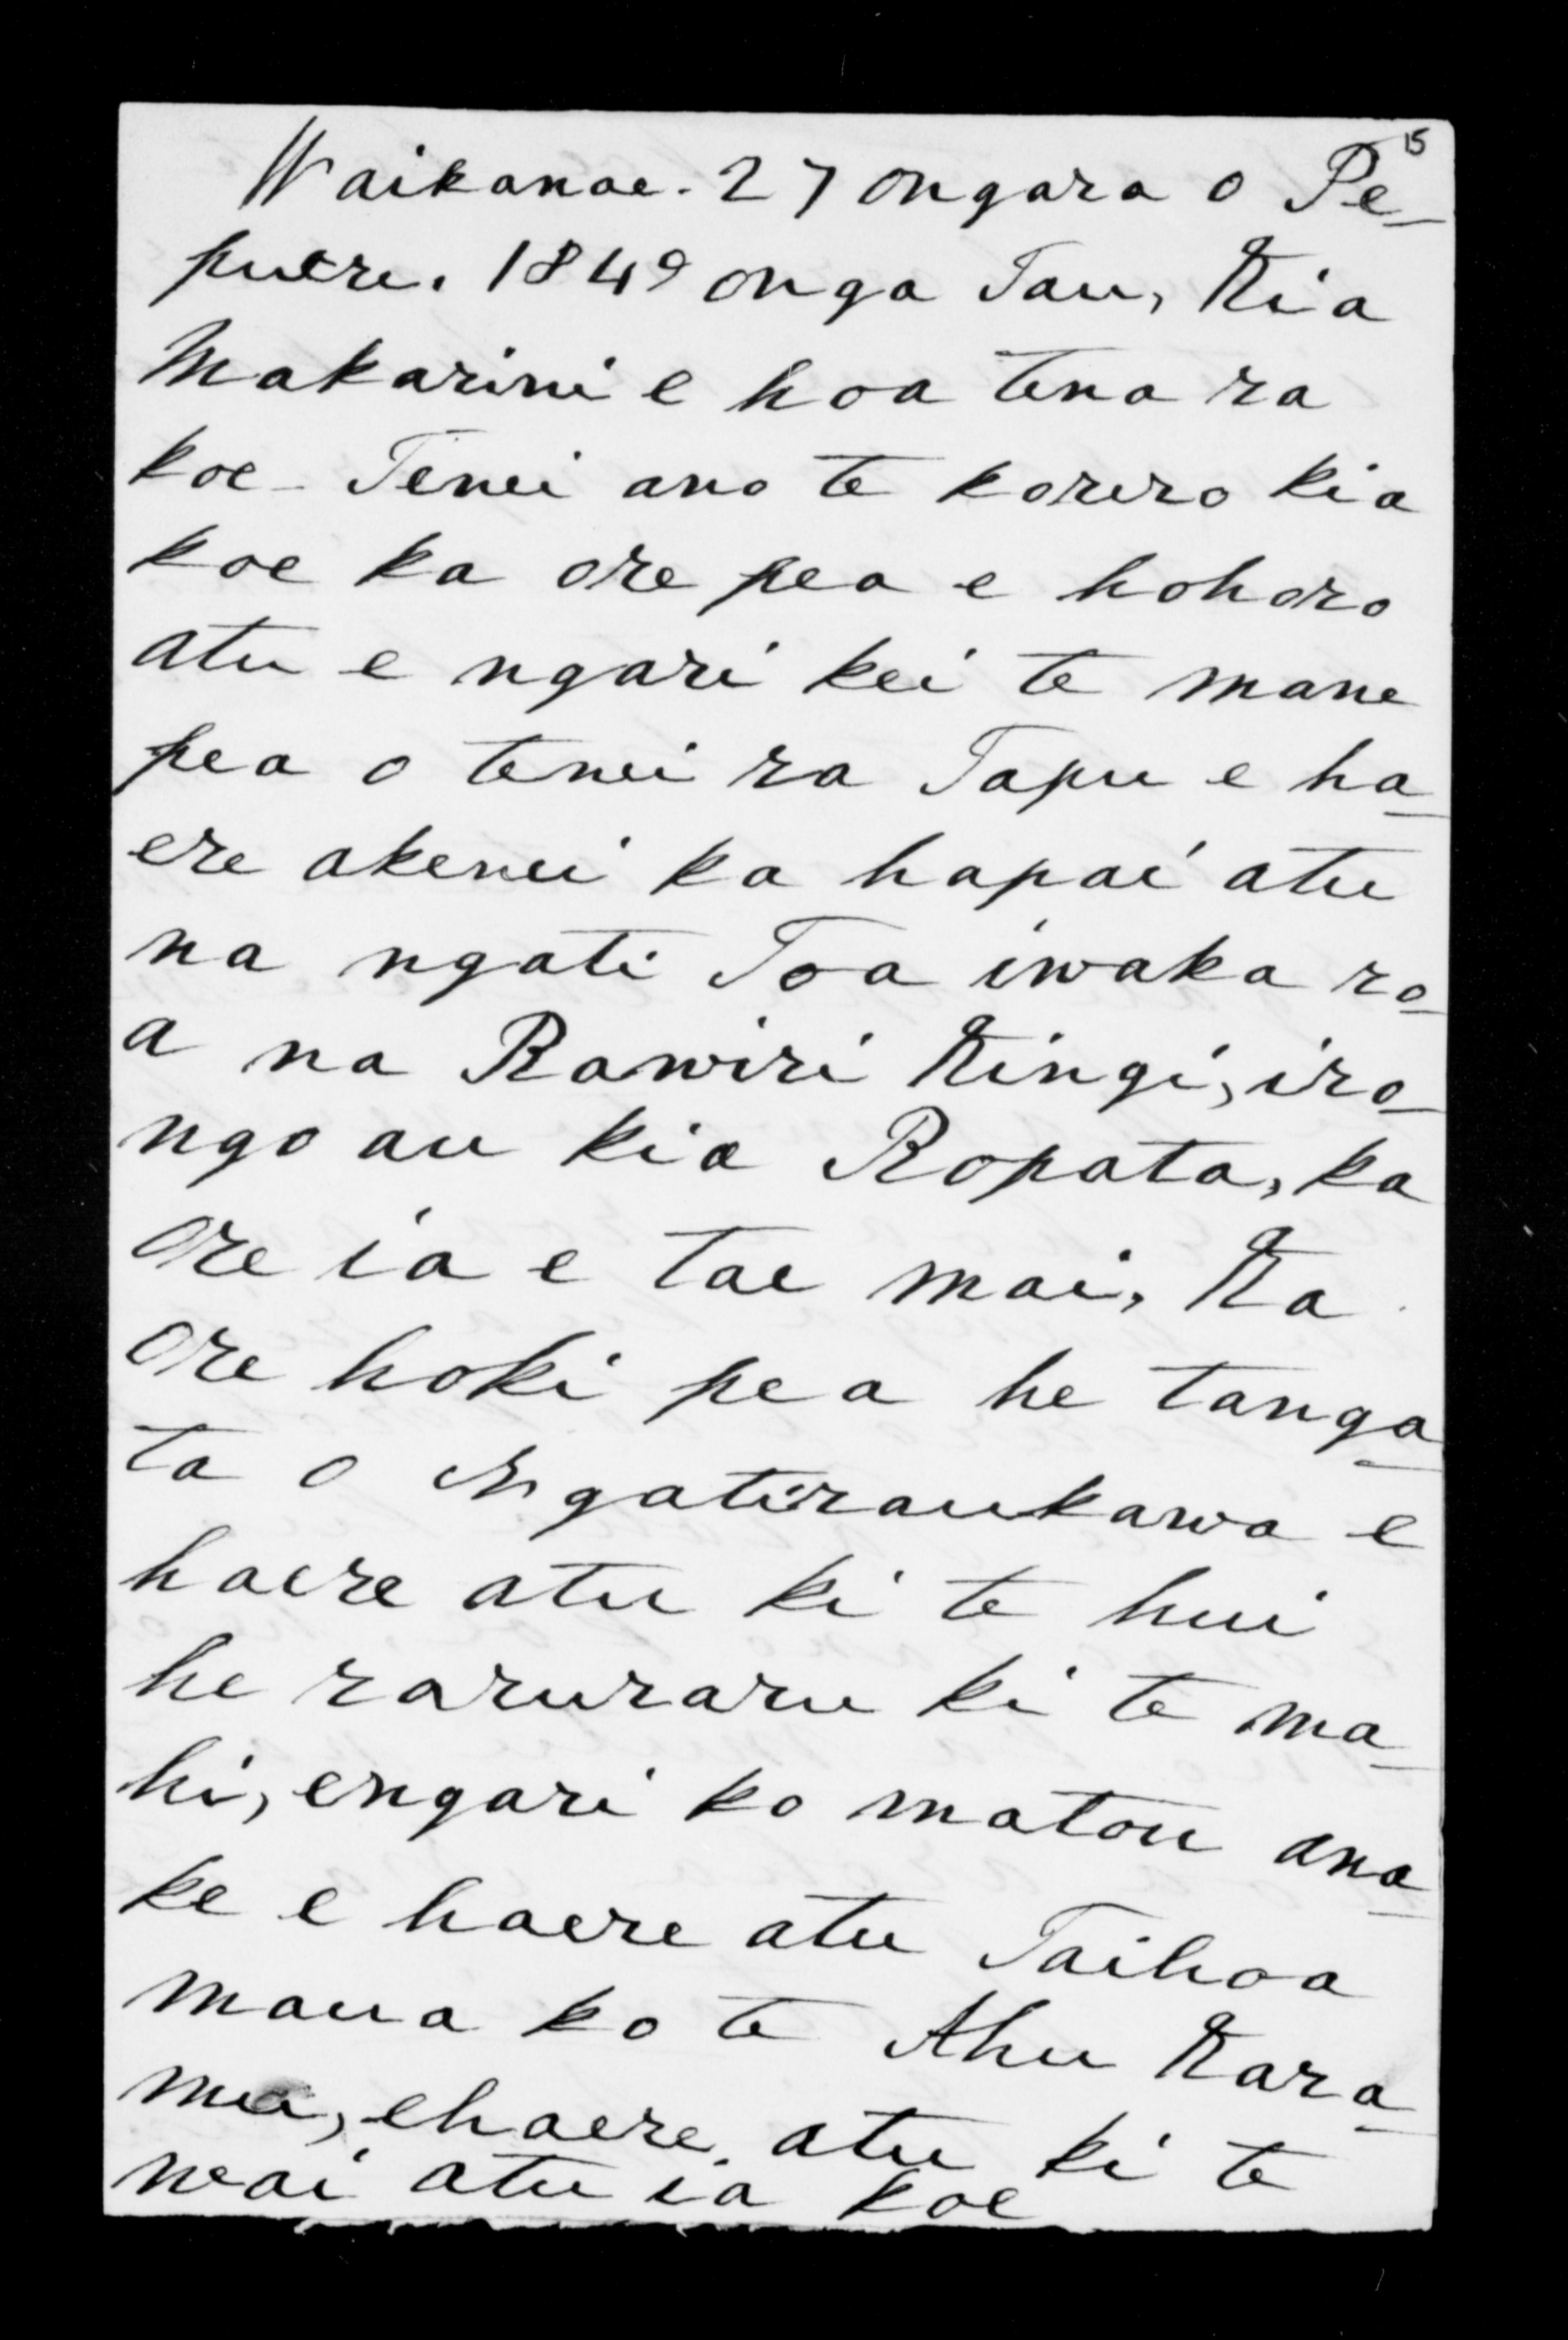 15
Waikanae. 27 ongara o Pe-
puere. 1849 onga Tau, Kia
Makarini e hoa tena ra
koe - Tenei ano te korero kia
koe ka ore pea e hohoro
atu e ngari kei te mane
pea o tenei ra Tapu e ha-
ere akenei ka hapai atu
na ngati Toa iwaka ro-
a na Rawiri Kingi, iro-
ngo au kia Ropata, ka
ore ia e tae mai, Ka
ore hoki pea he tanga-
ta o Ngatiraukawa e
haere atu ki te hui
he raruraru ki te ma-
hi, engari ko matou ana-
ke e haere atu Taihoa
maua ko te Ahu Kara-
mu, ehaere atu ki te
wai atu ia koe